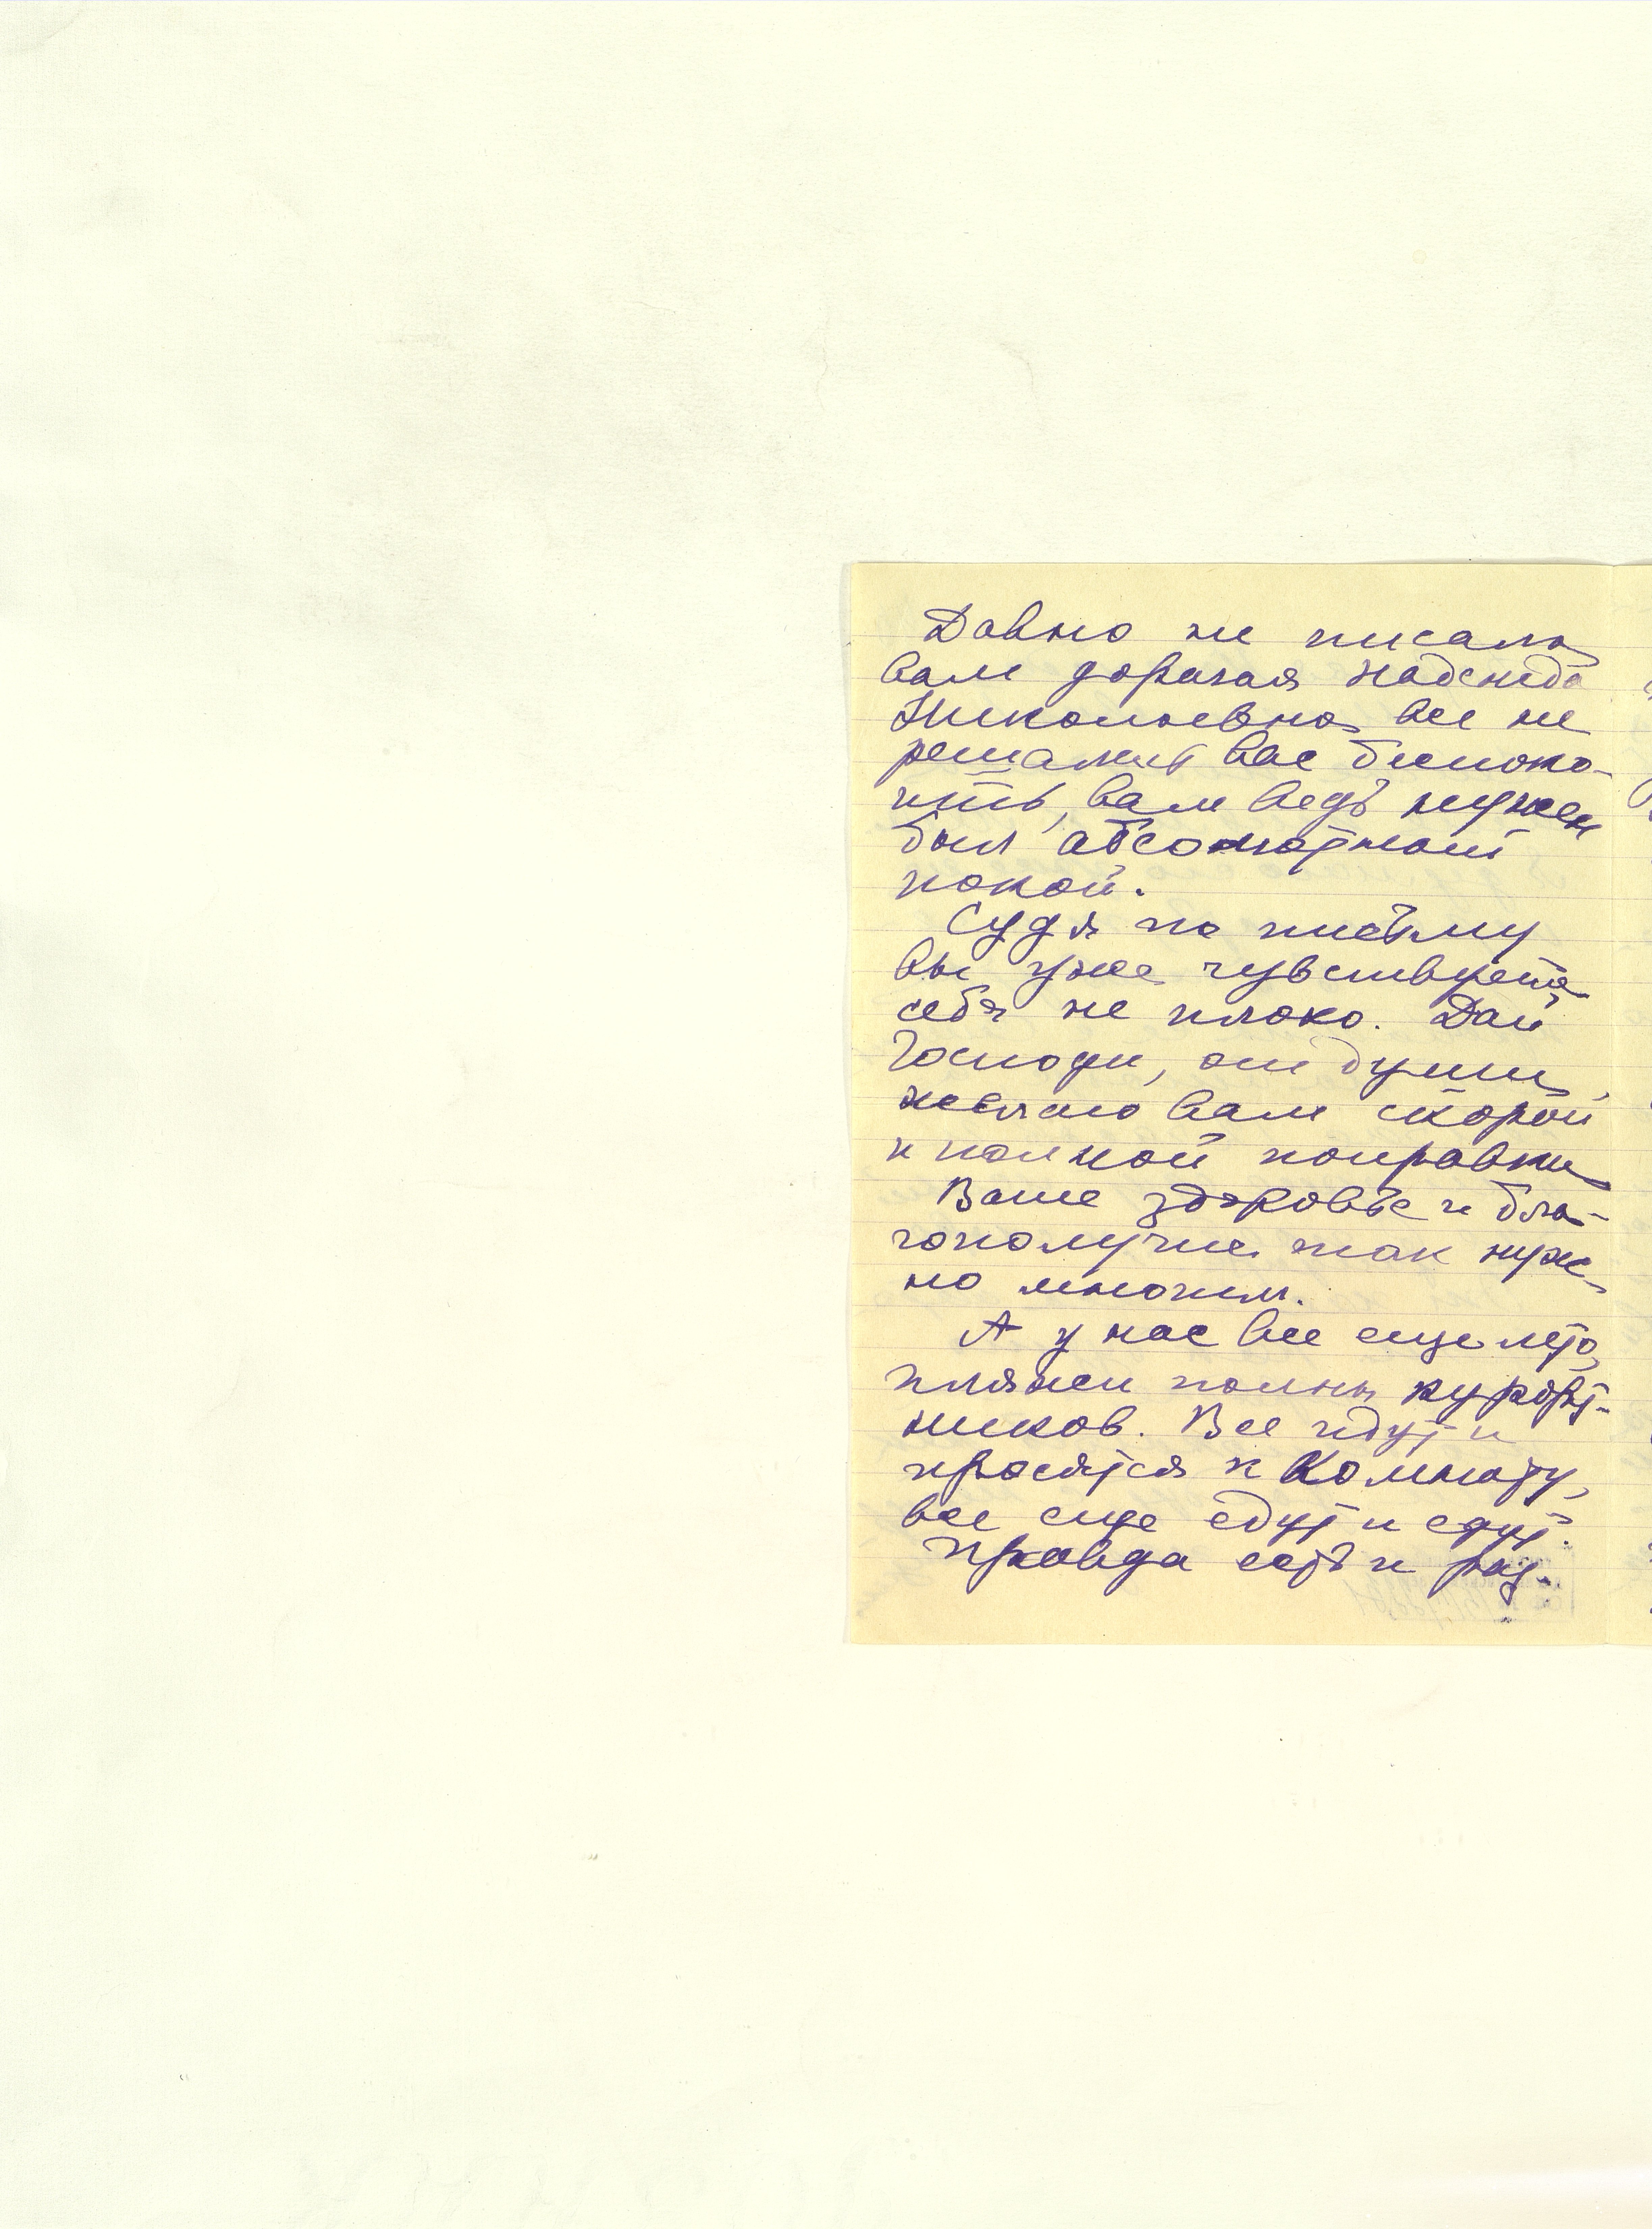 Давно не писала
вам дорогая Надежда
Николаевна, все не
решалась вас беспоко-
ить, вам ведь нужен
был абсолютный
покой.
Судя по письму
вы уже чувствуете
себя не плохо. Дай
Господи, от души
желаю вам скорой
и полной поправки
Ваше здоровье и бла-
гополучие так нуж-
но многим.
А у нас все еще лето,
пляжи полны курорт-
ников. Все идут и
просятся в комнату,
все еще едут и едут.
Правда есть и раз-